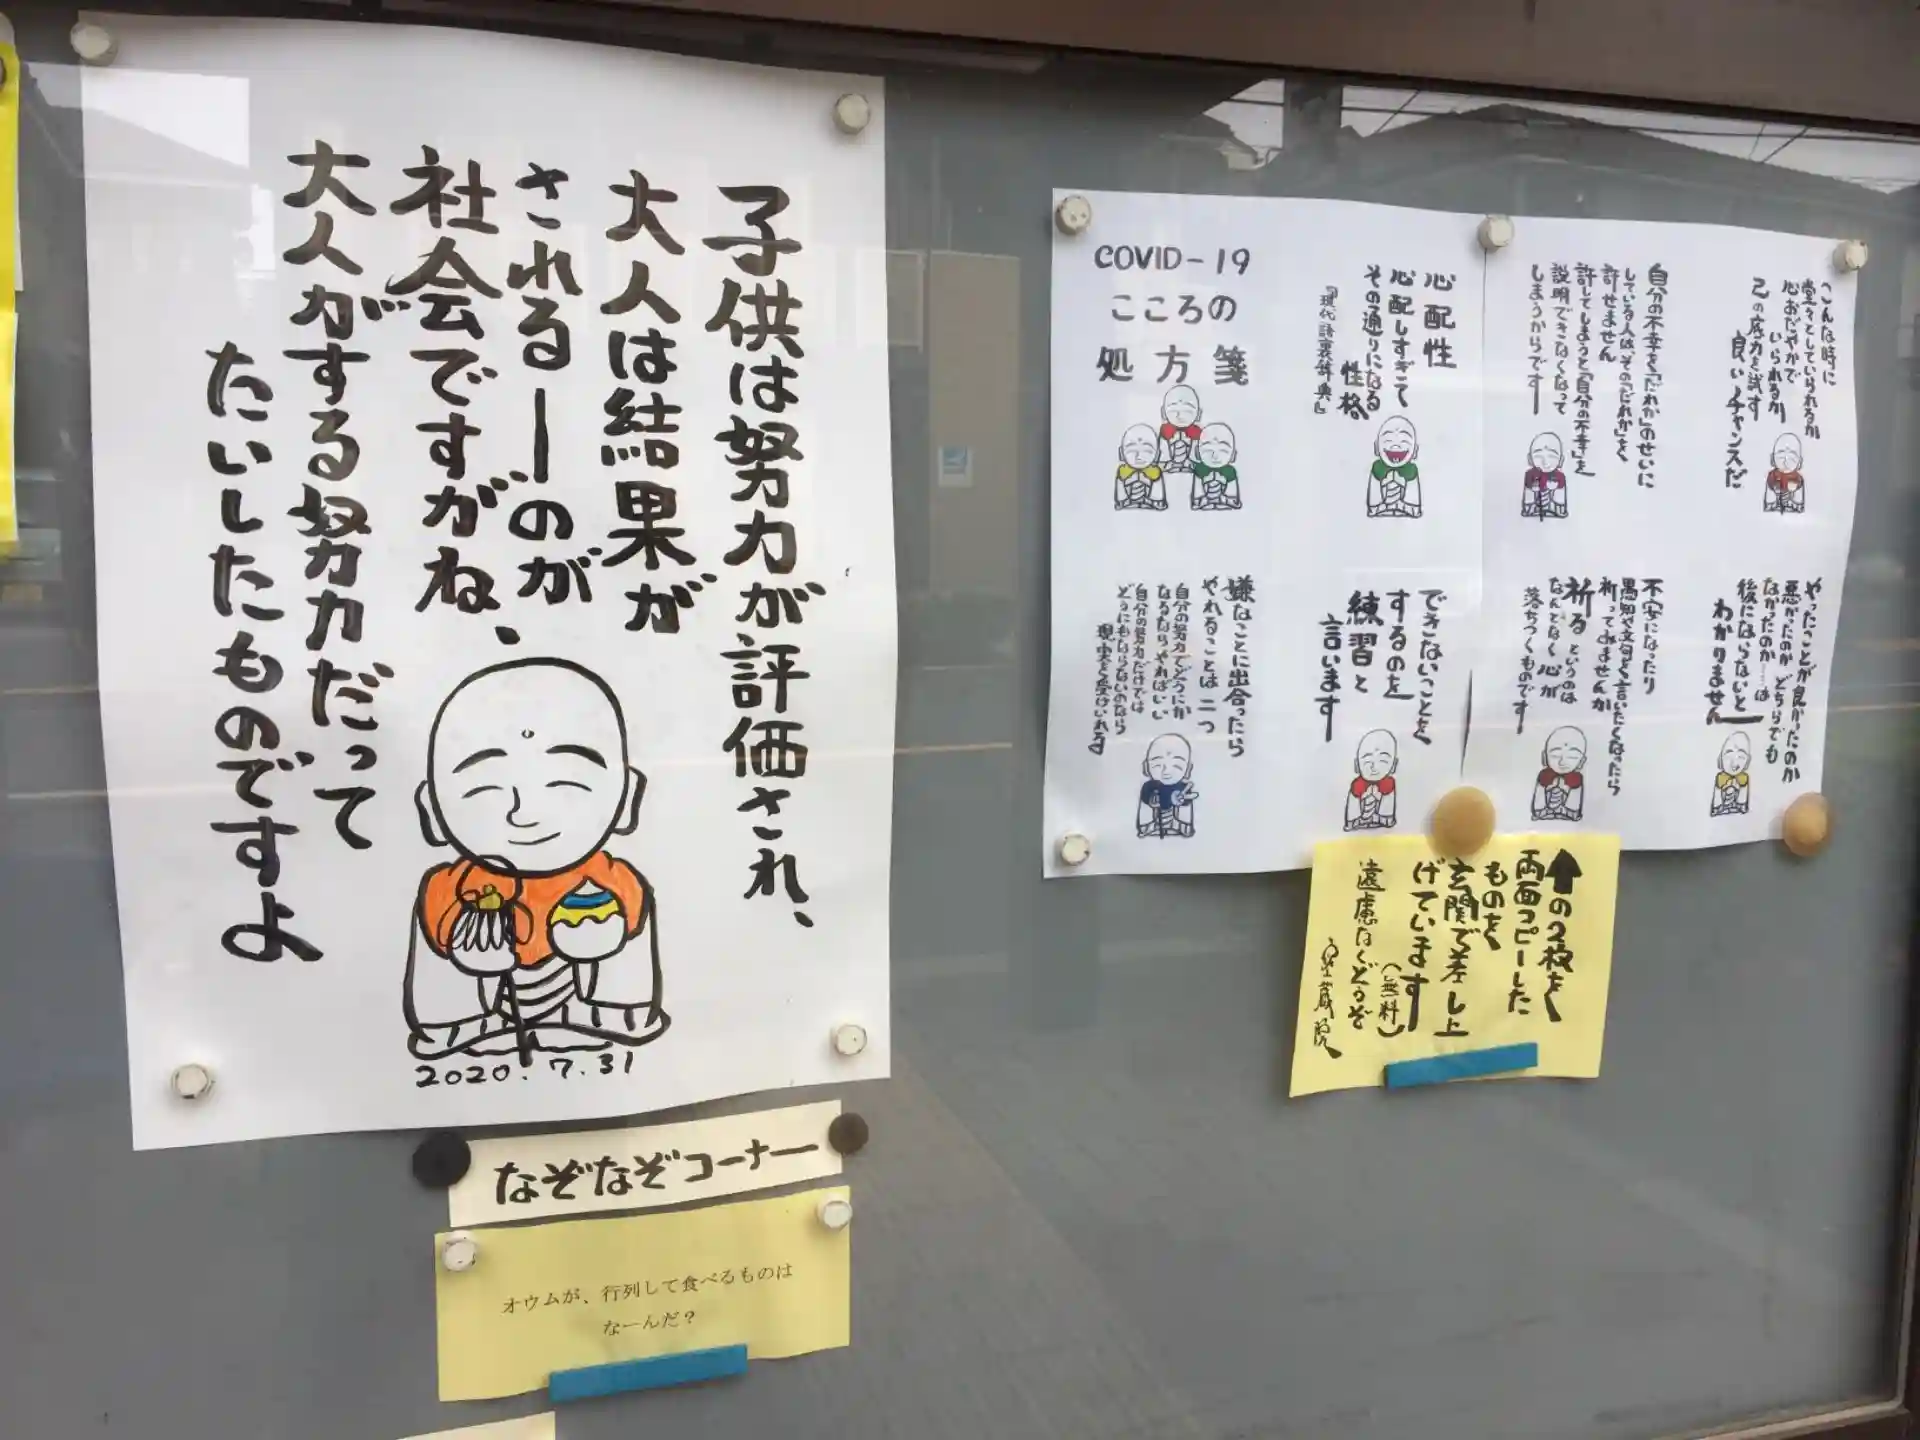 子供は努力が評価され、
大人は結果が
されるーのが
社会ですがね、
大人がする努力だって
たいしたものですよ
2020.7.31
なぞなぞコーナー
オウムが、行列して食べるものは
なーんだ？
COVID-19
こころの
処方箋
心配性
心配しすぎて
その通りになる
性格
『現代語裏辞典』
自分の不幸を「だれか」のせいに
している人は、その「だれか」を
許せません
許してしまうと「自分の不幸」を
説明できなくなって
しまうからです
こんな時に
堂々としていられるか
心おだやかで
いられるか
己の底力を試す
良いチャンスだ
嫌なことに出合ったら
やれることは二つ
自分の努力でどうにか
なるならやればいい
自分の努力だけでは
どうにもならないのなら
現実を受けいれる
できないことを
するのを
練習と
言います
不安になったり
愚知や文句を言いたくなったら
祈ってみませんか
祈るというのは
なんとなく心が
落ちつくものです
やったことが良かったのか
悪かったのか どちらでも
なかったのか…は
後にならないと
わかりません
⬆の2枚を
両面コピーした
ものを
玄関で差し上
げています
(無料)
遠慮なくどうぞ
密蔵院